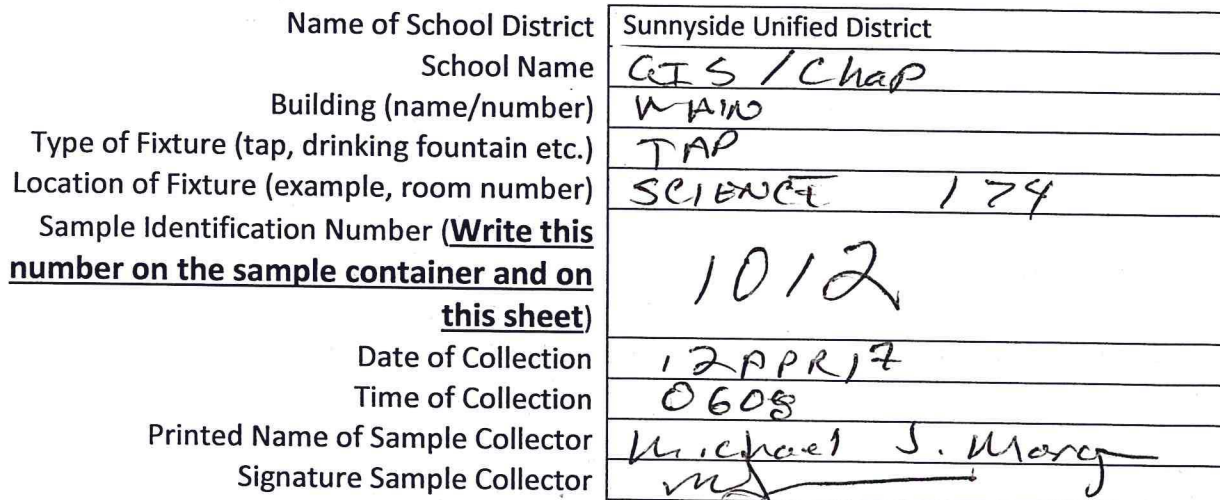 Name of School District Sunnyside Unified District
School Name / Chap
Building (name/number) MAIN
Type of Fixture (tap, drinking fountain etc.) TAP
Location of Fixture (example, room number) SCIENCE 174
Sample Identification Number (Write this
number on the sample container and on 1012
this sheet)
Date of Collection 12APR17
Time of Collection 0608
Printed Name of Sample Collector Michael J.
Signature Sample Collector